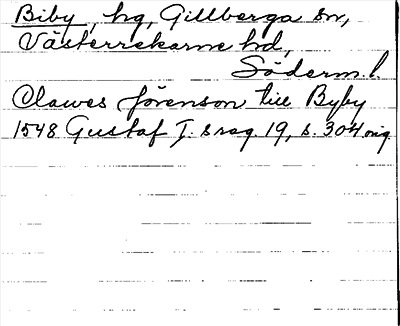 Biby, hg, Gillberga sn,
Västerrekarne hd,
Söderm.l.
Clawes Jörenson till Byby
1548 Gustaf I:s reg. 19, s. 304 orig.